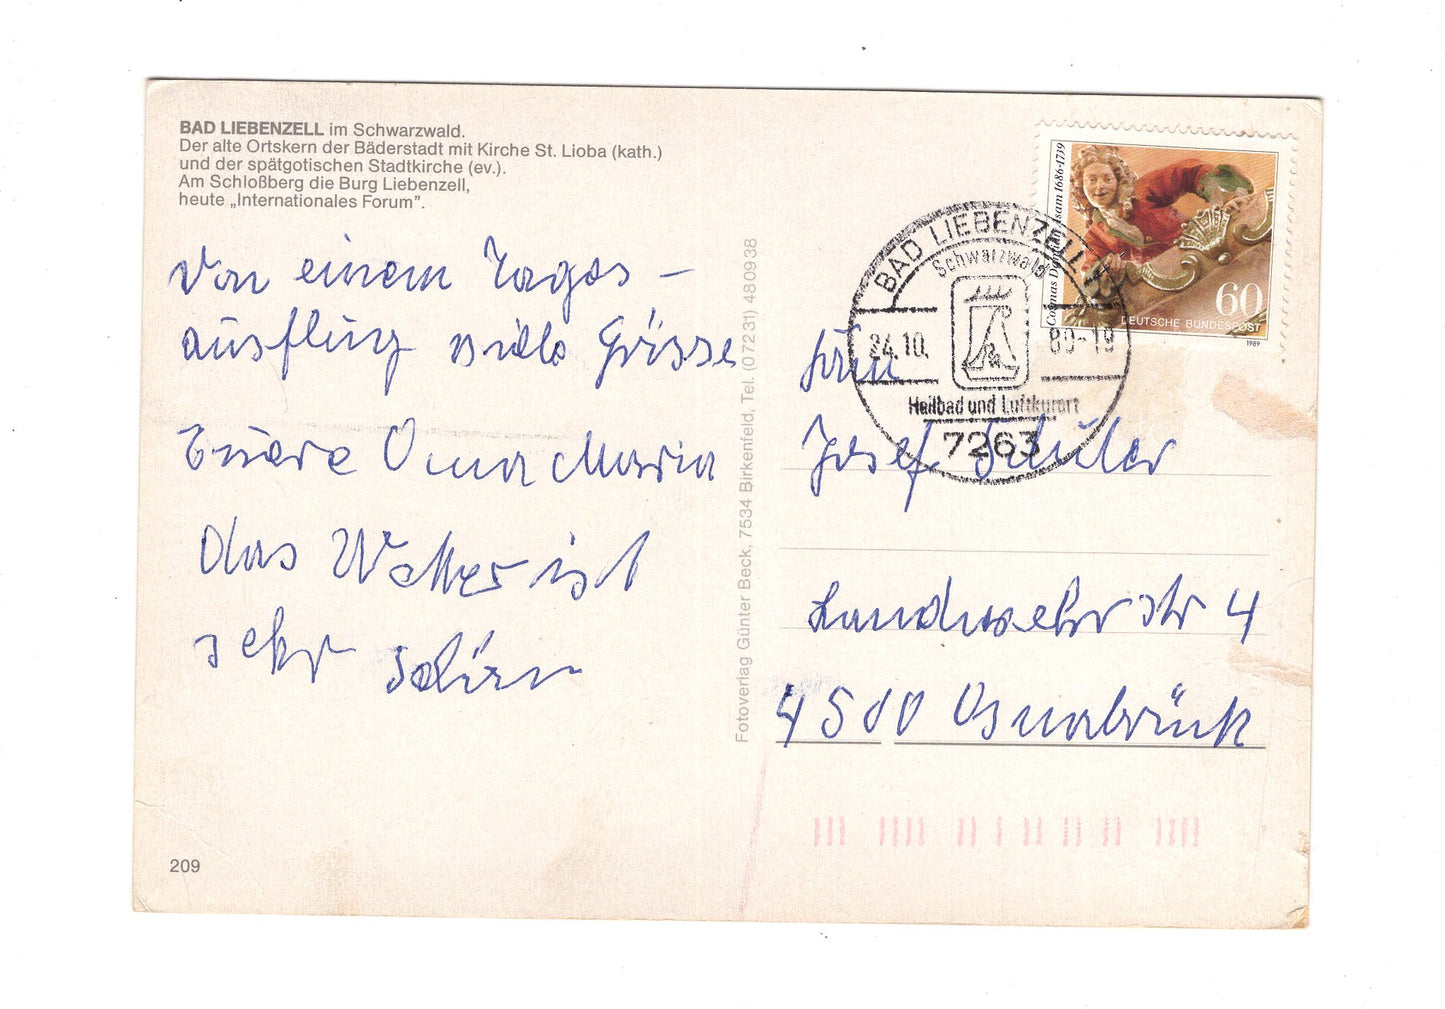 BAD LIEBENZELL im Schwarzwald.
Der alte Ortskern der Bäderstadt mit Kirche St. Lioba (kath.)
und der spätgotischen Stadtkirche (ev.).
Am Schloßberg die Burg Liebenzell,
heute „Internationales Forum".
Von einem Tages-
ausflug viele Grüsse
Euere Oma Maria
das Wetter ist
sehr schön
209
Fotoverlag Günter Beck, 7534 Birkenfeld, Tel. (07231) 480938
Cosmas Damian Asam 1686-1739
60
DEUTSCHE BUNDESPOST
1989
BAD LIEBENZELL
Schwarzwald
24.10. 89-19
Heilbad und Luftkurort
7263
Josef Schüler
Landwehrstr 4
4500 Osnabrück